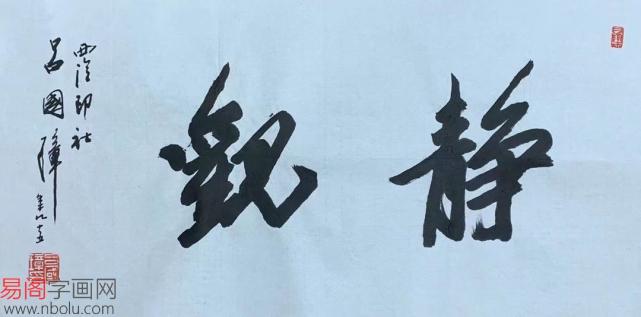 静觀
西泠印社
吕國璋
易阁字画网
www.nbolu.com